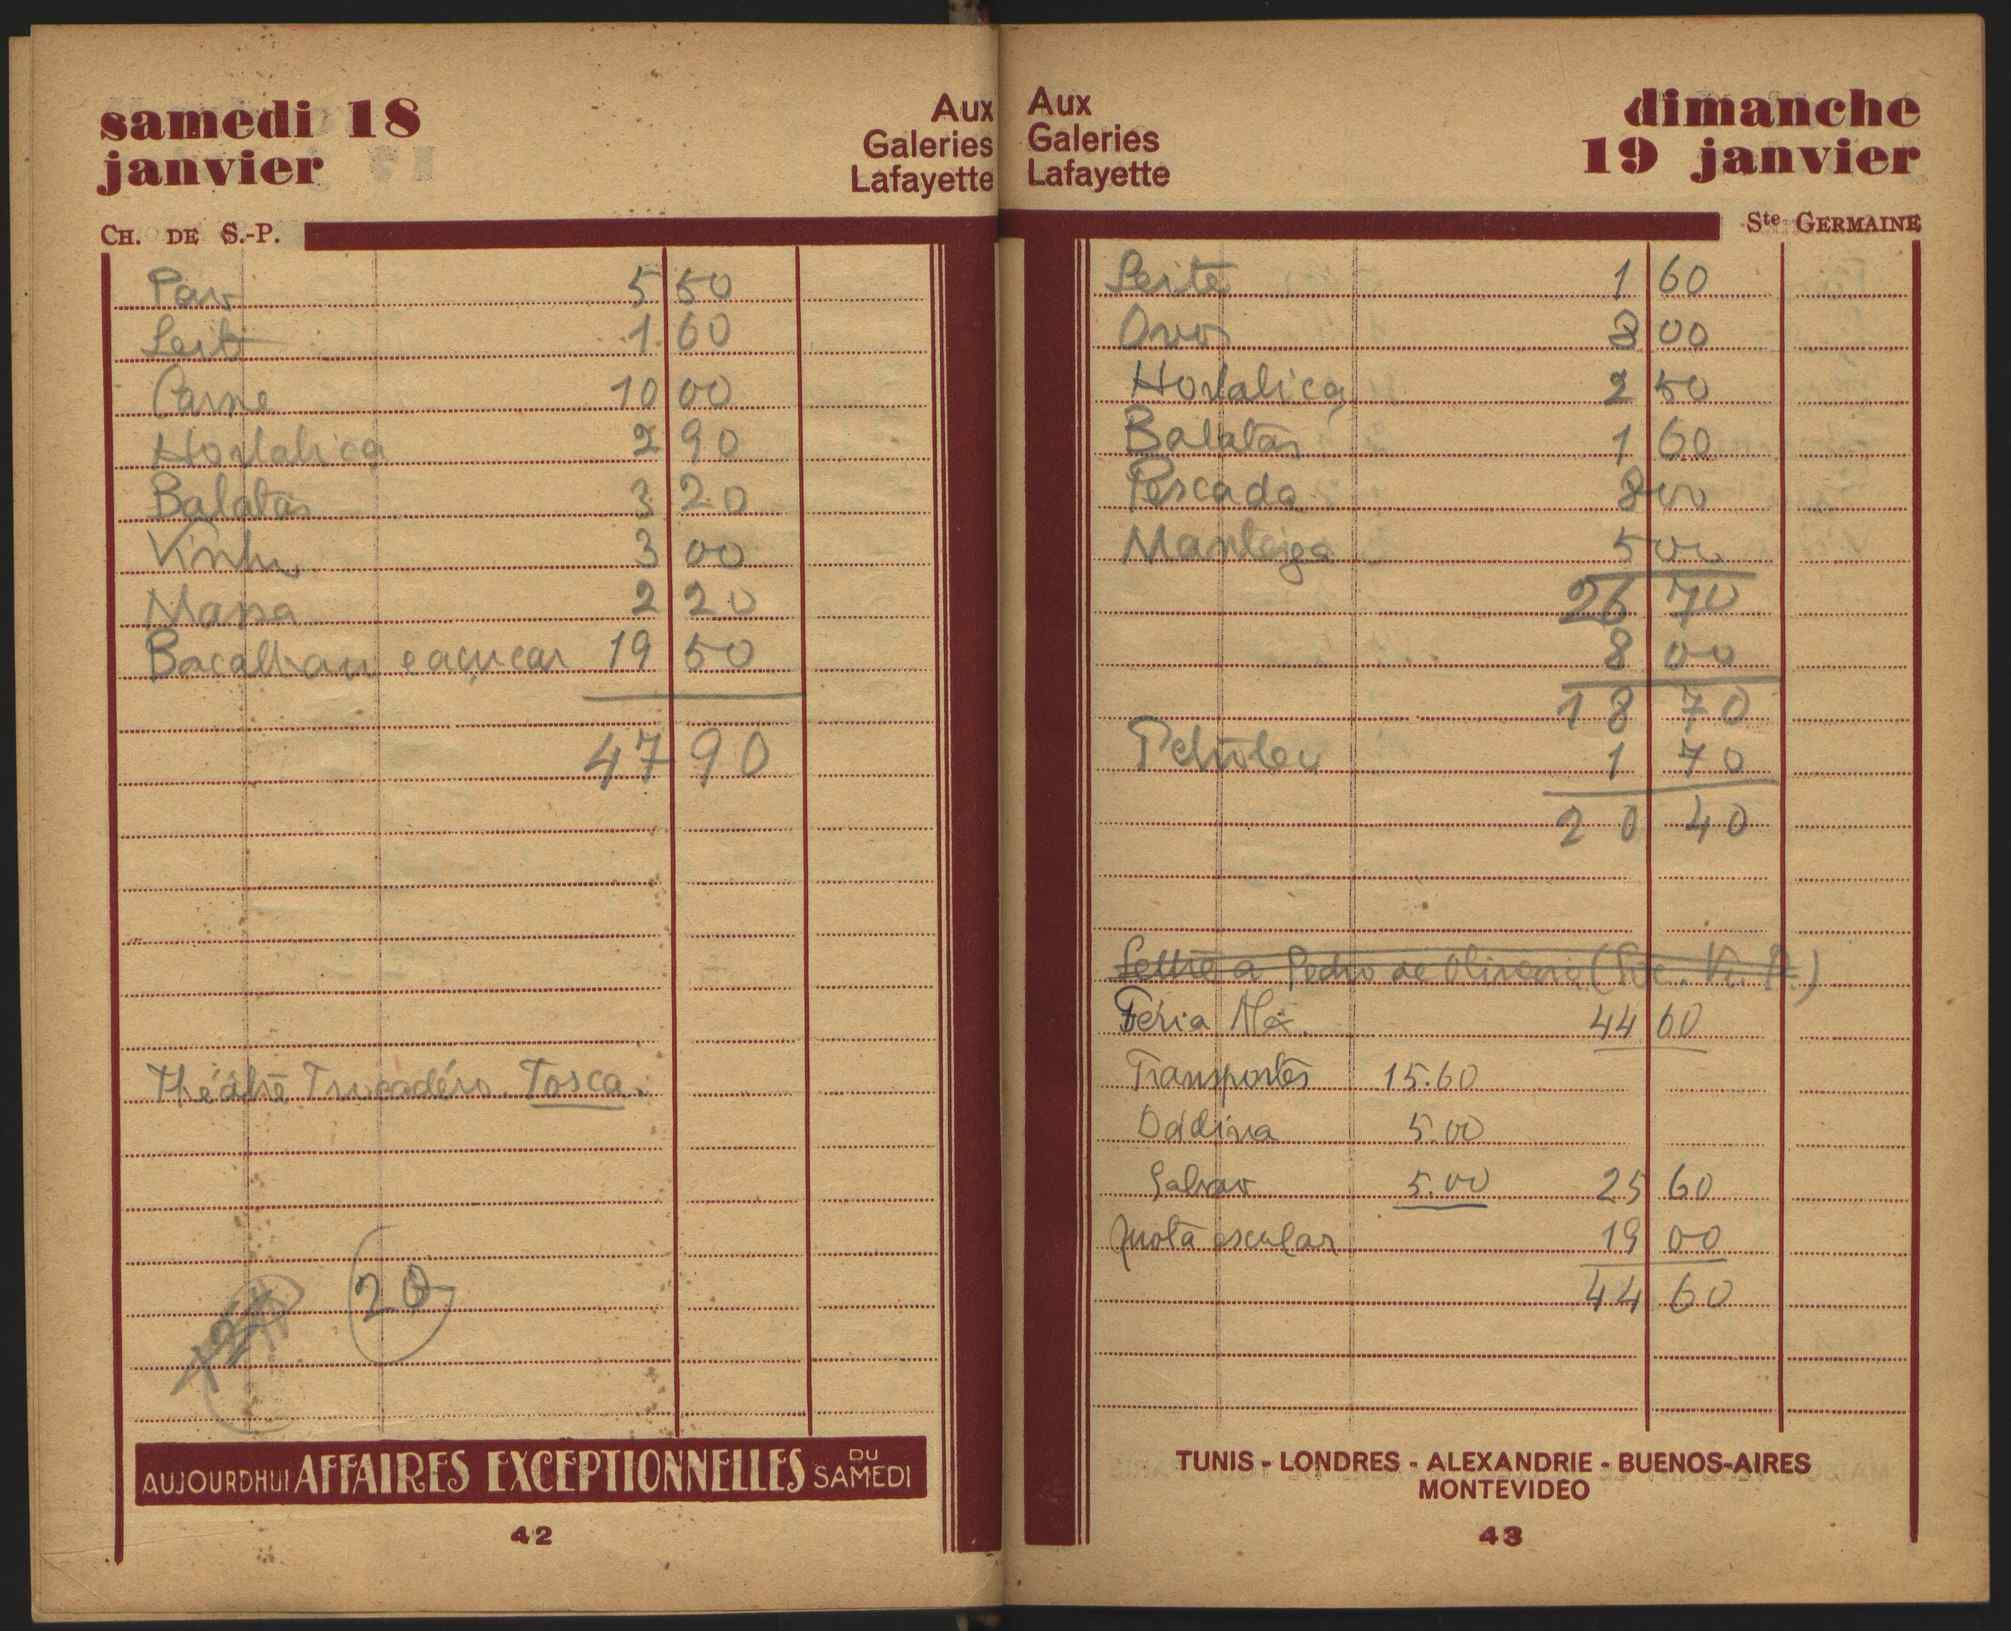 samedi 18
janvier
Aux
Galeries
Lafayette
CH. DE S.-P.
Pão 5 50
Leite 1 60
Carne 10 00
Hortaliça 2 90
Batatas 3 20
Vinho 3 00
Massa 2 20
Bacalhau e açucar 19 50
47 90
Théâtre Trocadéro. Tosca.
20
AUJOURDHUI AFFAIRES EXCEPTIONNELLES DU SAMEDI
42
Aux
Galeries
Lafayette
dimanche
19 janvier
Ste GERMAINE
Leite 1 60
Ovos 8 00
Hortaliça 2 50
Batatas 1 60
Pescada 8 00
Manteiga 5 00
26 70
8 00
18 70
Petroleo 1 70
20 40
Lettre a Pedro de Oliveira
Féria 44 60
Transportes 15.60
Oddina 5.00
Galvão 5.00 25 60
Nota escolar 19 00
44 60
TUNIS - LONDRES - ALEXANDRIE - BUENOS-AIRES
MONTEVIDEO
43